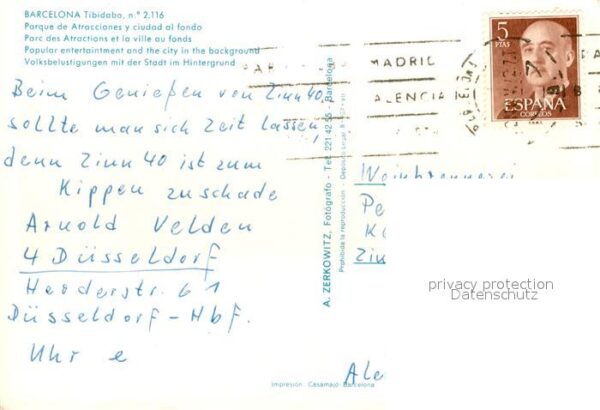 BARCELONA Tibidabo, n.º 2.116
Parque de Atracciones y ciudad al fondo
Parc des Attractions et la ville au fonds
Popular entertaintment and the city in the background
Volksbelustigungen mit der Stadt im Hintergrund
Beim Genießen von Zinn 40,
sollte man sich Zeit lassen,
denn Zinn 40 ist zum
Kippen zu schade
Arnold Velden
4 Düsseldorf
Herderstr. 61
Düsseldorf - Hbf.
Uhr e
A. ZERKOWITZ, Fotógrafo - Tel. 221 42 55 - Barcelona
Prohibida la reproducción - Depósito Legal B
Impresión: Casamajó-Barcelona
MADRID
ALENCIA
5
PTAS
ESPAÑA
CORREOS
Weinbrennerei
Pe
K
Zin
Ale
privacy protection
Datenschutz